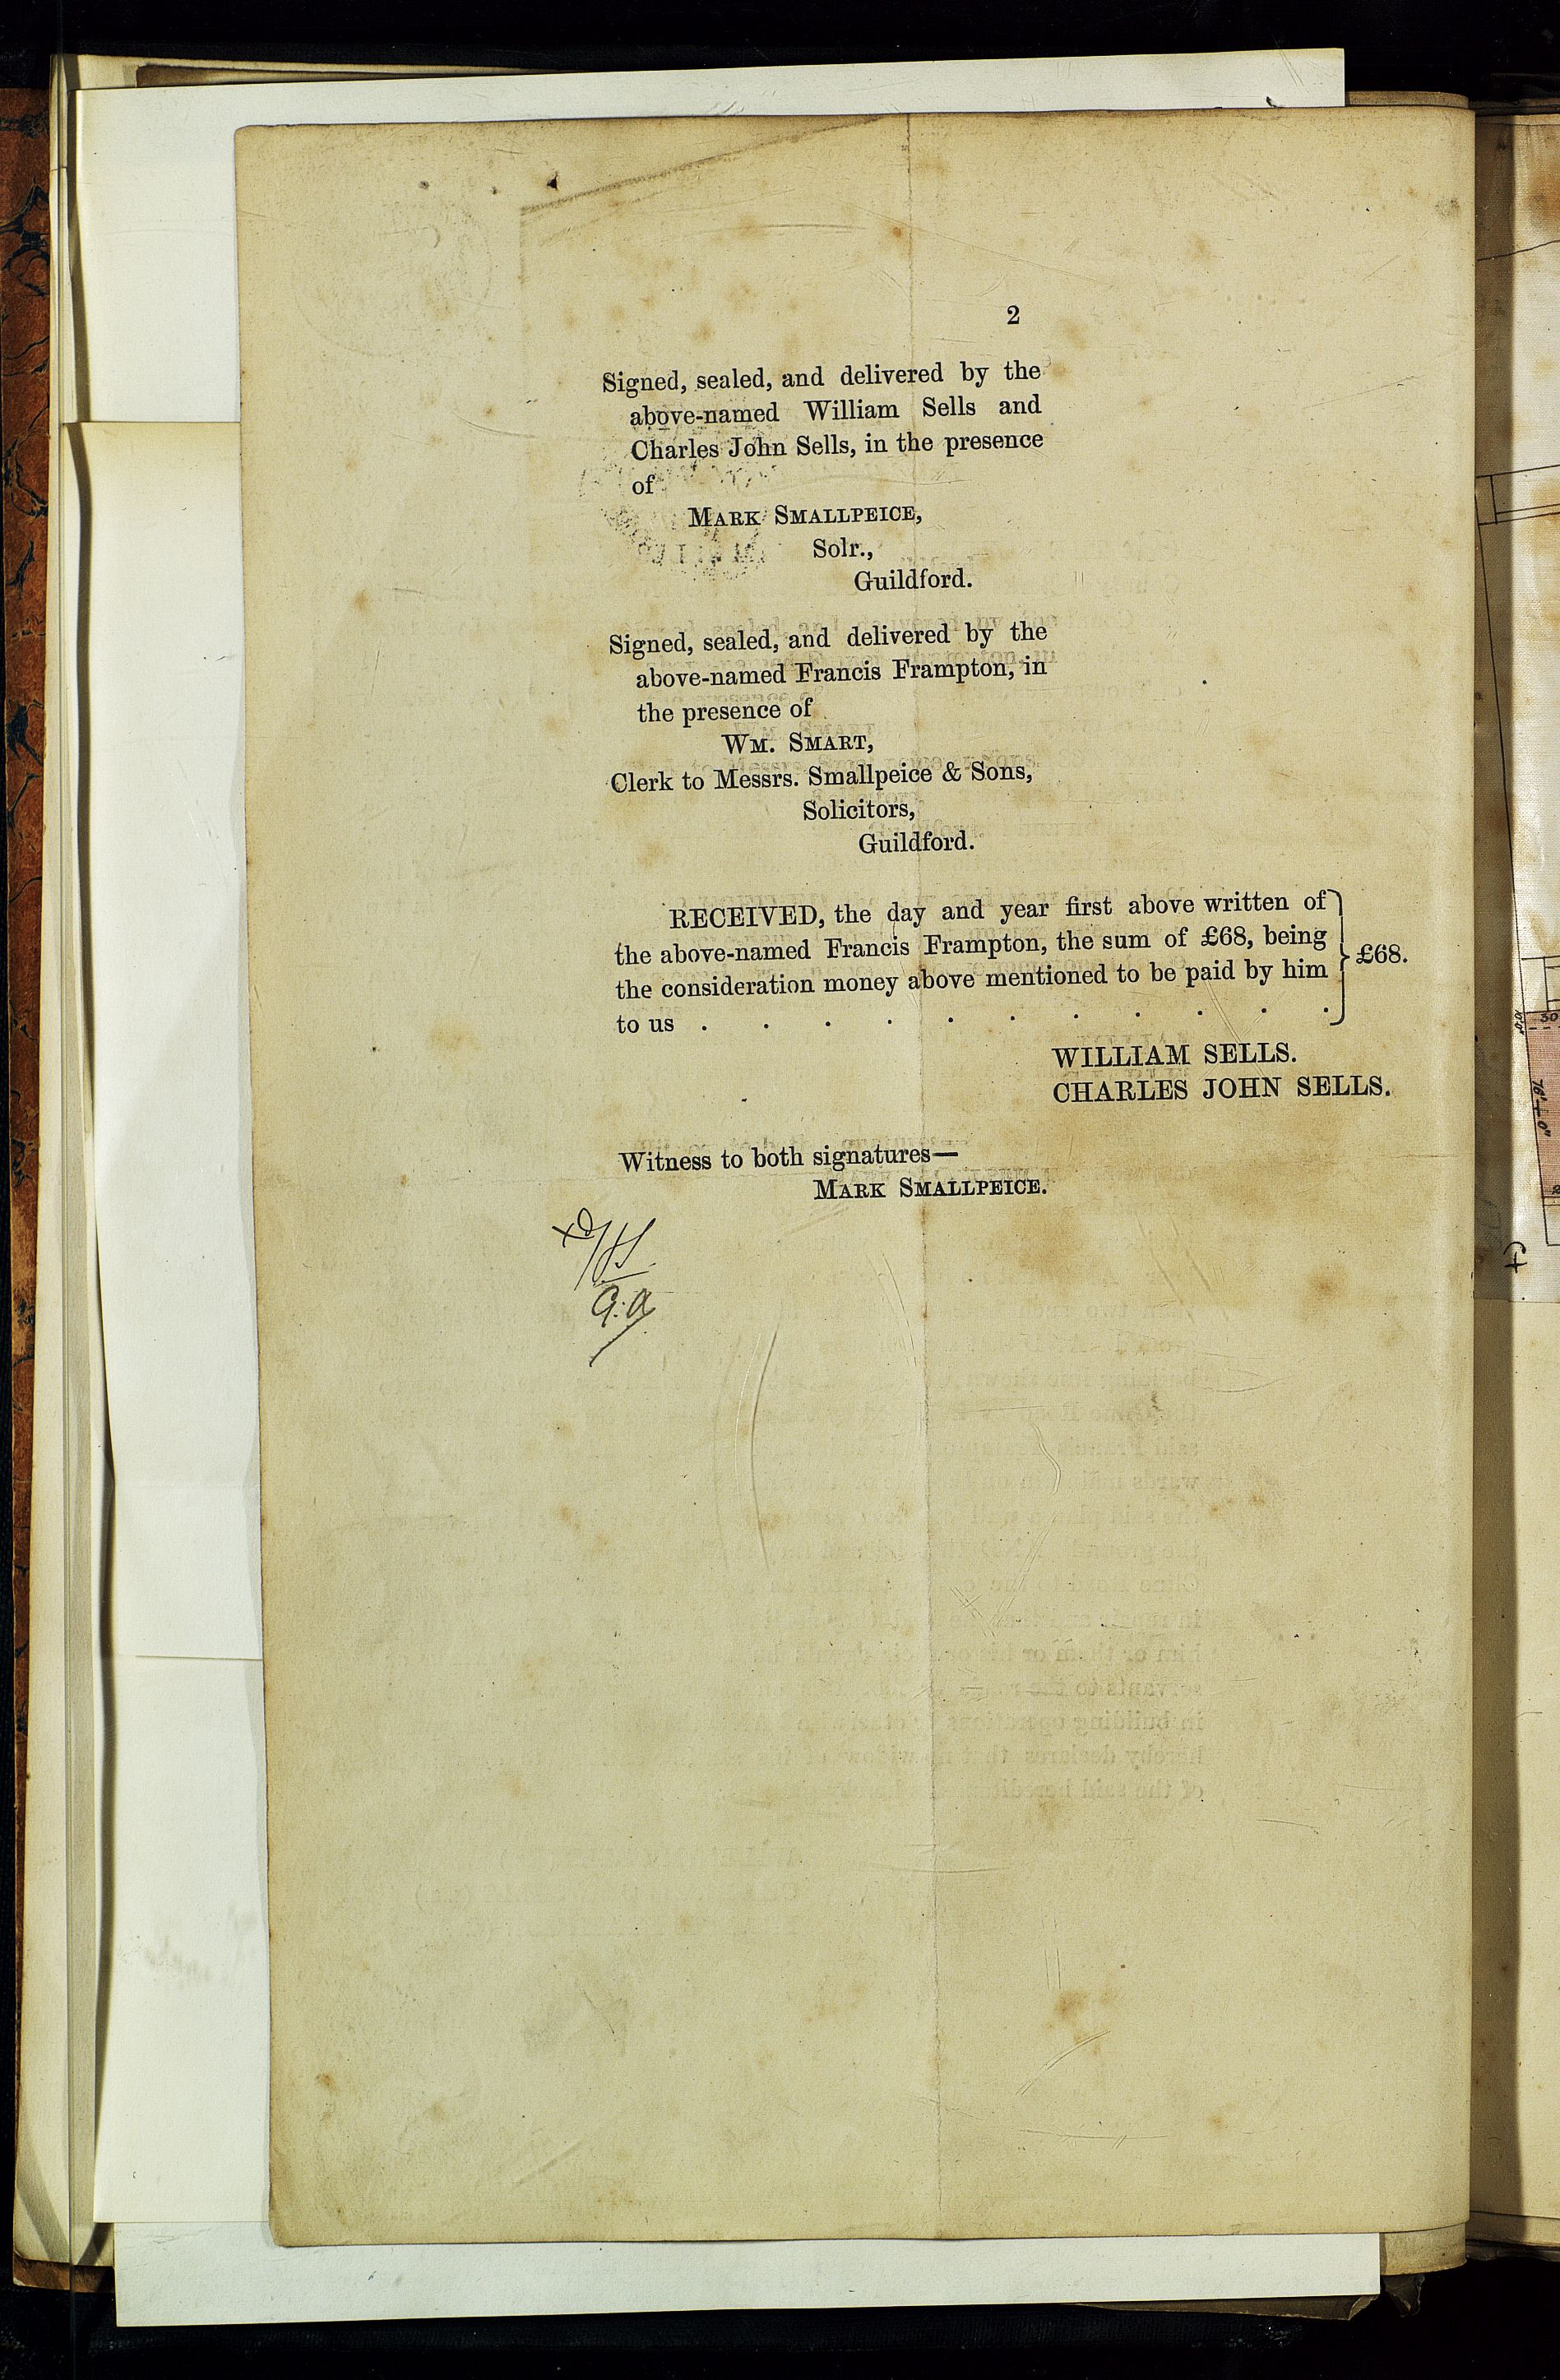 2
Signed, sealed, and delivered by the
above-named William Sells and
Charles John Sells, in the presence
of
MARK SMALLPEICE,
Solr.,
Guildford.
Signed, sealed, and delivered by the
above-named Francis Frampton, in
the presence of
WM. SMART,
Clerk to Messrs. Smallpeice & Sons,
Solicitors,
Guildford.
RECEIVED, the day and year first above written of
the above-named Francis Frampton, the sum of £68, being
the consideration money above mentioned to be paid by him
to us . . . . . . . . . . .
£68.
WILLIAM SELLS.
CHARLES JOHN SELLS.
Witness to both signatures—
MARK SMALLPEICE.